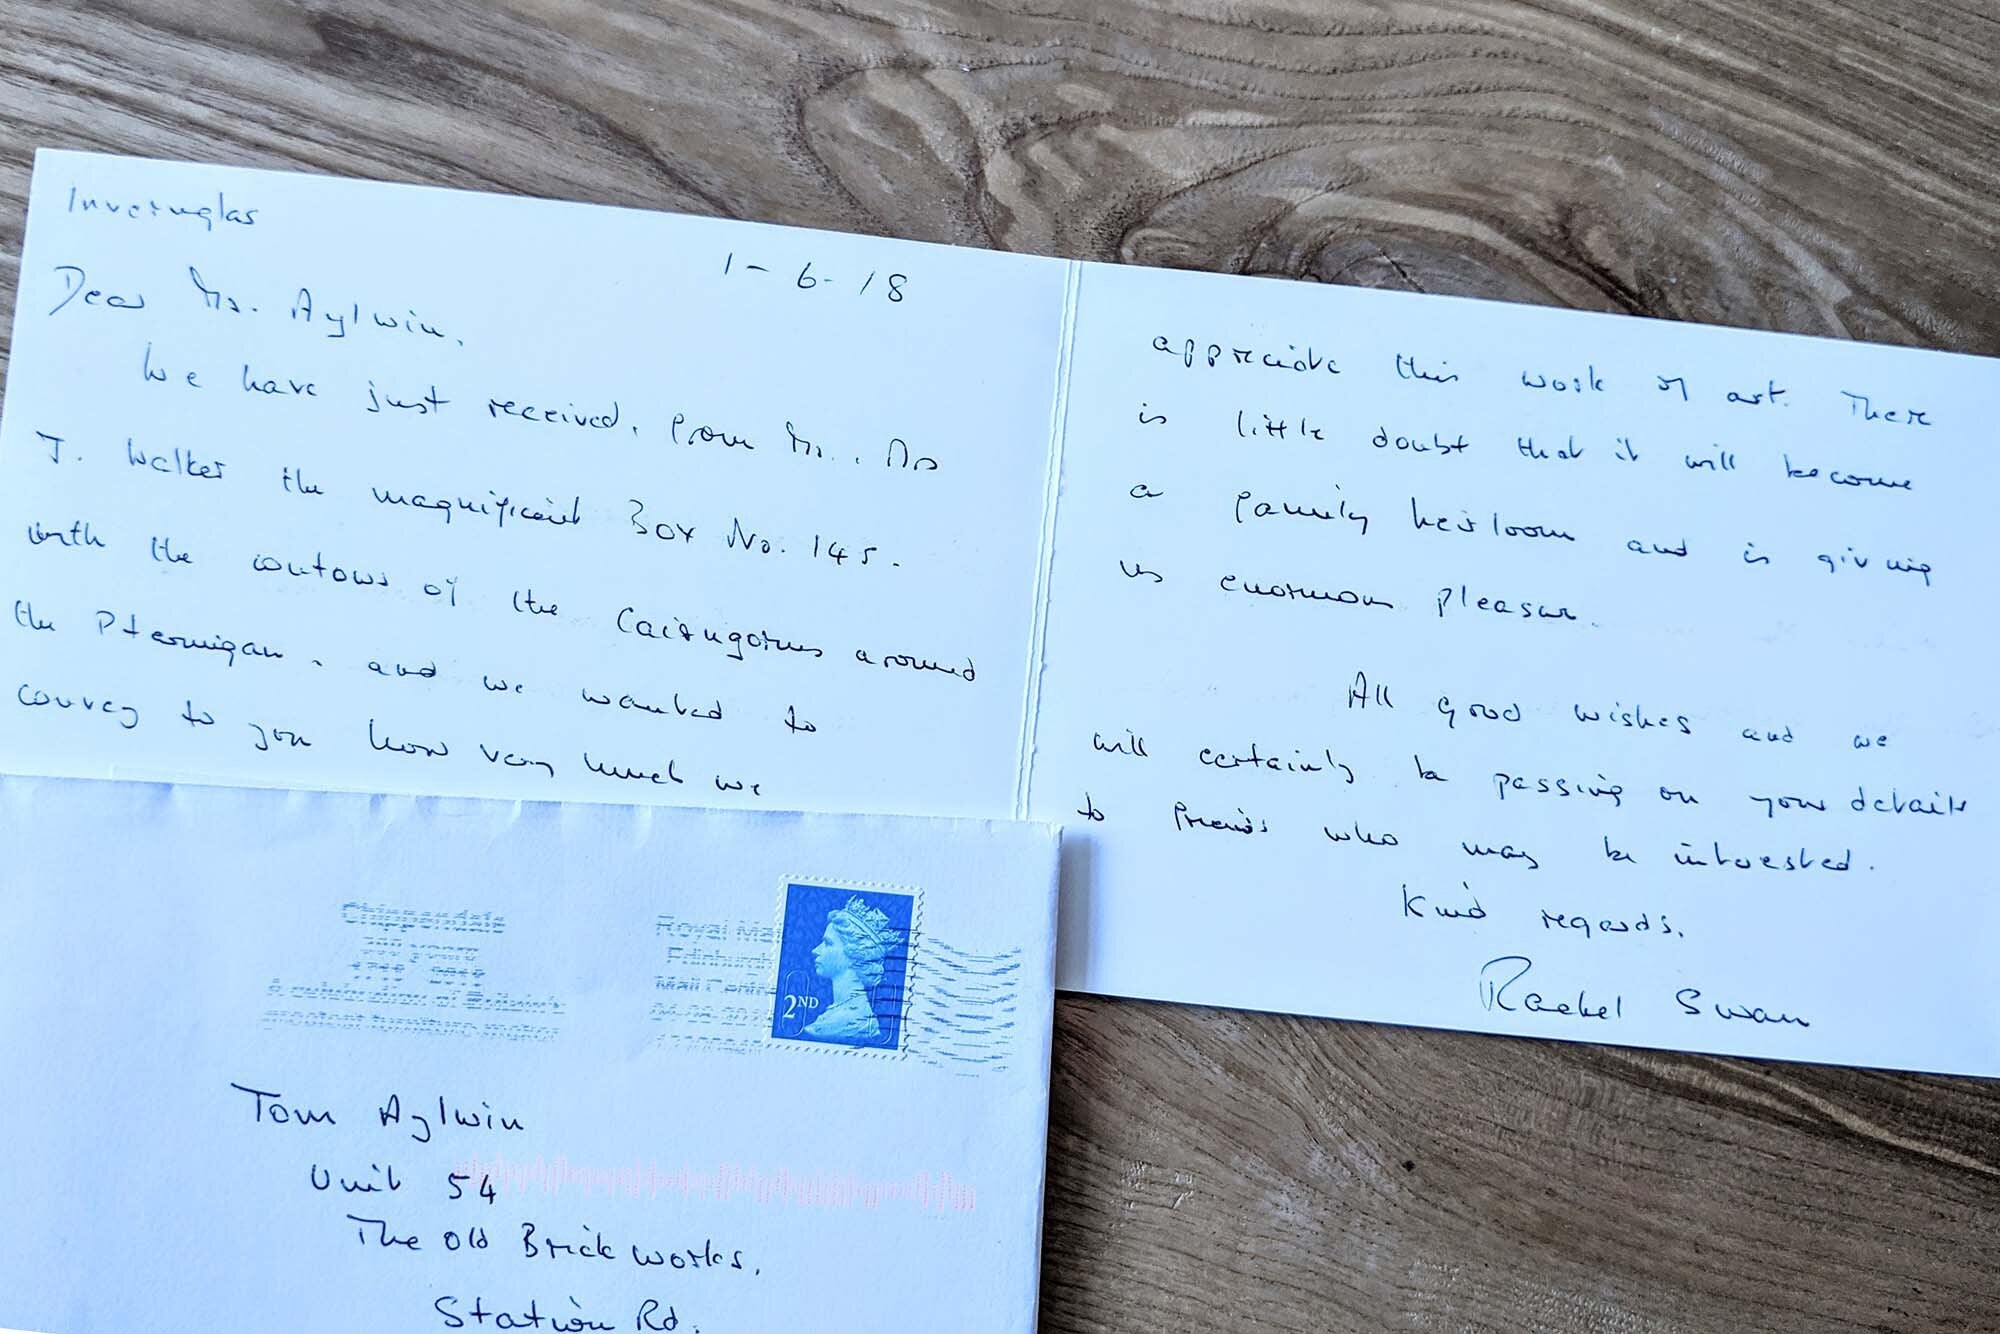 Inveruglas
1-6-18
Dear Mr. Aylwin,
We have just received, from Mr.. Ms
J. Walker the magnificent Box No. 145.
with the contours of the Cairngorms around
the Ptarmigan. and we wanted to
convey to you how very much we
appreciate this work of art. There
is little doubt that it will become
a family heirloom and is giving
us enormous pleasure.
All good wishes and we
will certainly be passing on your details
to friends who may be interested.
Kind regards.
Rachel Swan
Royal Mail
Edinburgh
Mail Centre
2ND
Tom Aylwin
Unit 54
The Old Brick Works,
Station Rd.